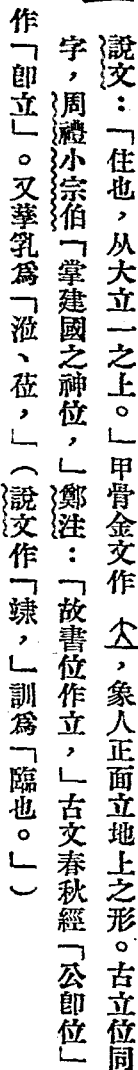 說文：「住也，从大立一之上。」甲骨金文作 𡗓，象人正面立地上之形。古立位同
字，周禮小宗伯「掌建國之神位，」鄭注：「故書位作立，」古文春秋經「公卽位」
作「卽立」。又孳乳爲「涖、莅，」（說文作「𥩳，」訓爲「臨也。」）